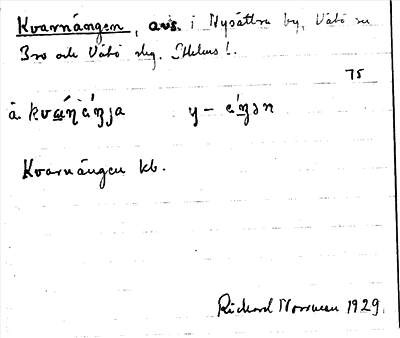 Kvarnängen, avs. i Nysättra by, Vätö sn
Bro och Vätö skg. Sthlms l.
75
å kvaɳèɳja y - èɳən
Kvarnängen kb.
Richard Norrman 1929.